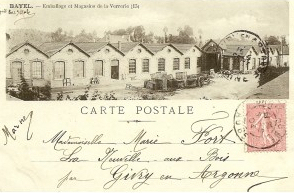 BAYEL. — Emballage et Magasins de la Verrerie (E)
CARTE POSTALE
Marne
Mademoiselle Marie Fort
La Neuville aux Bois
par Givry en Argonne